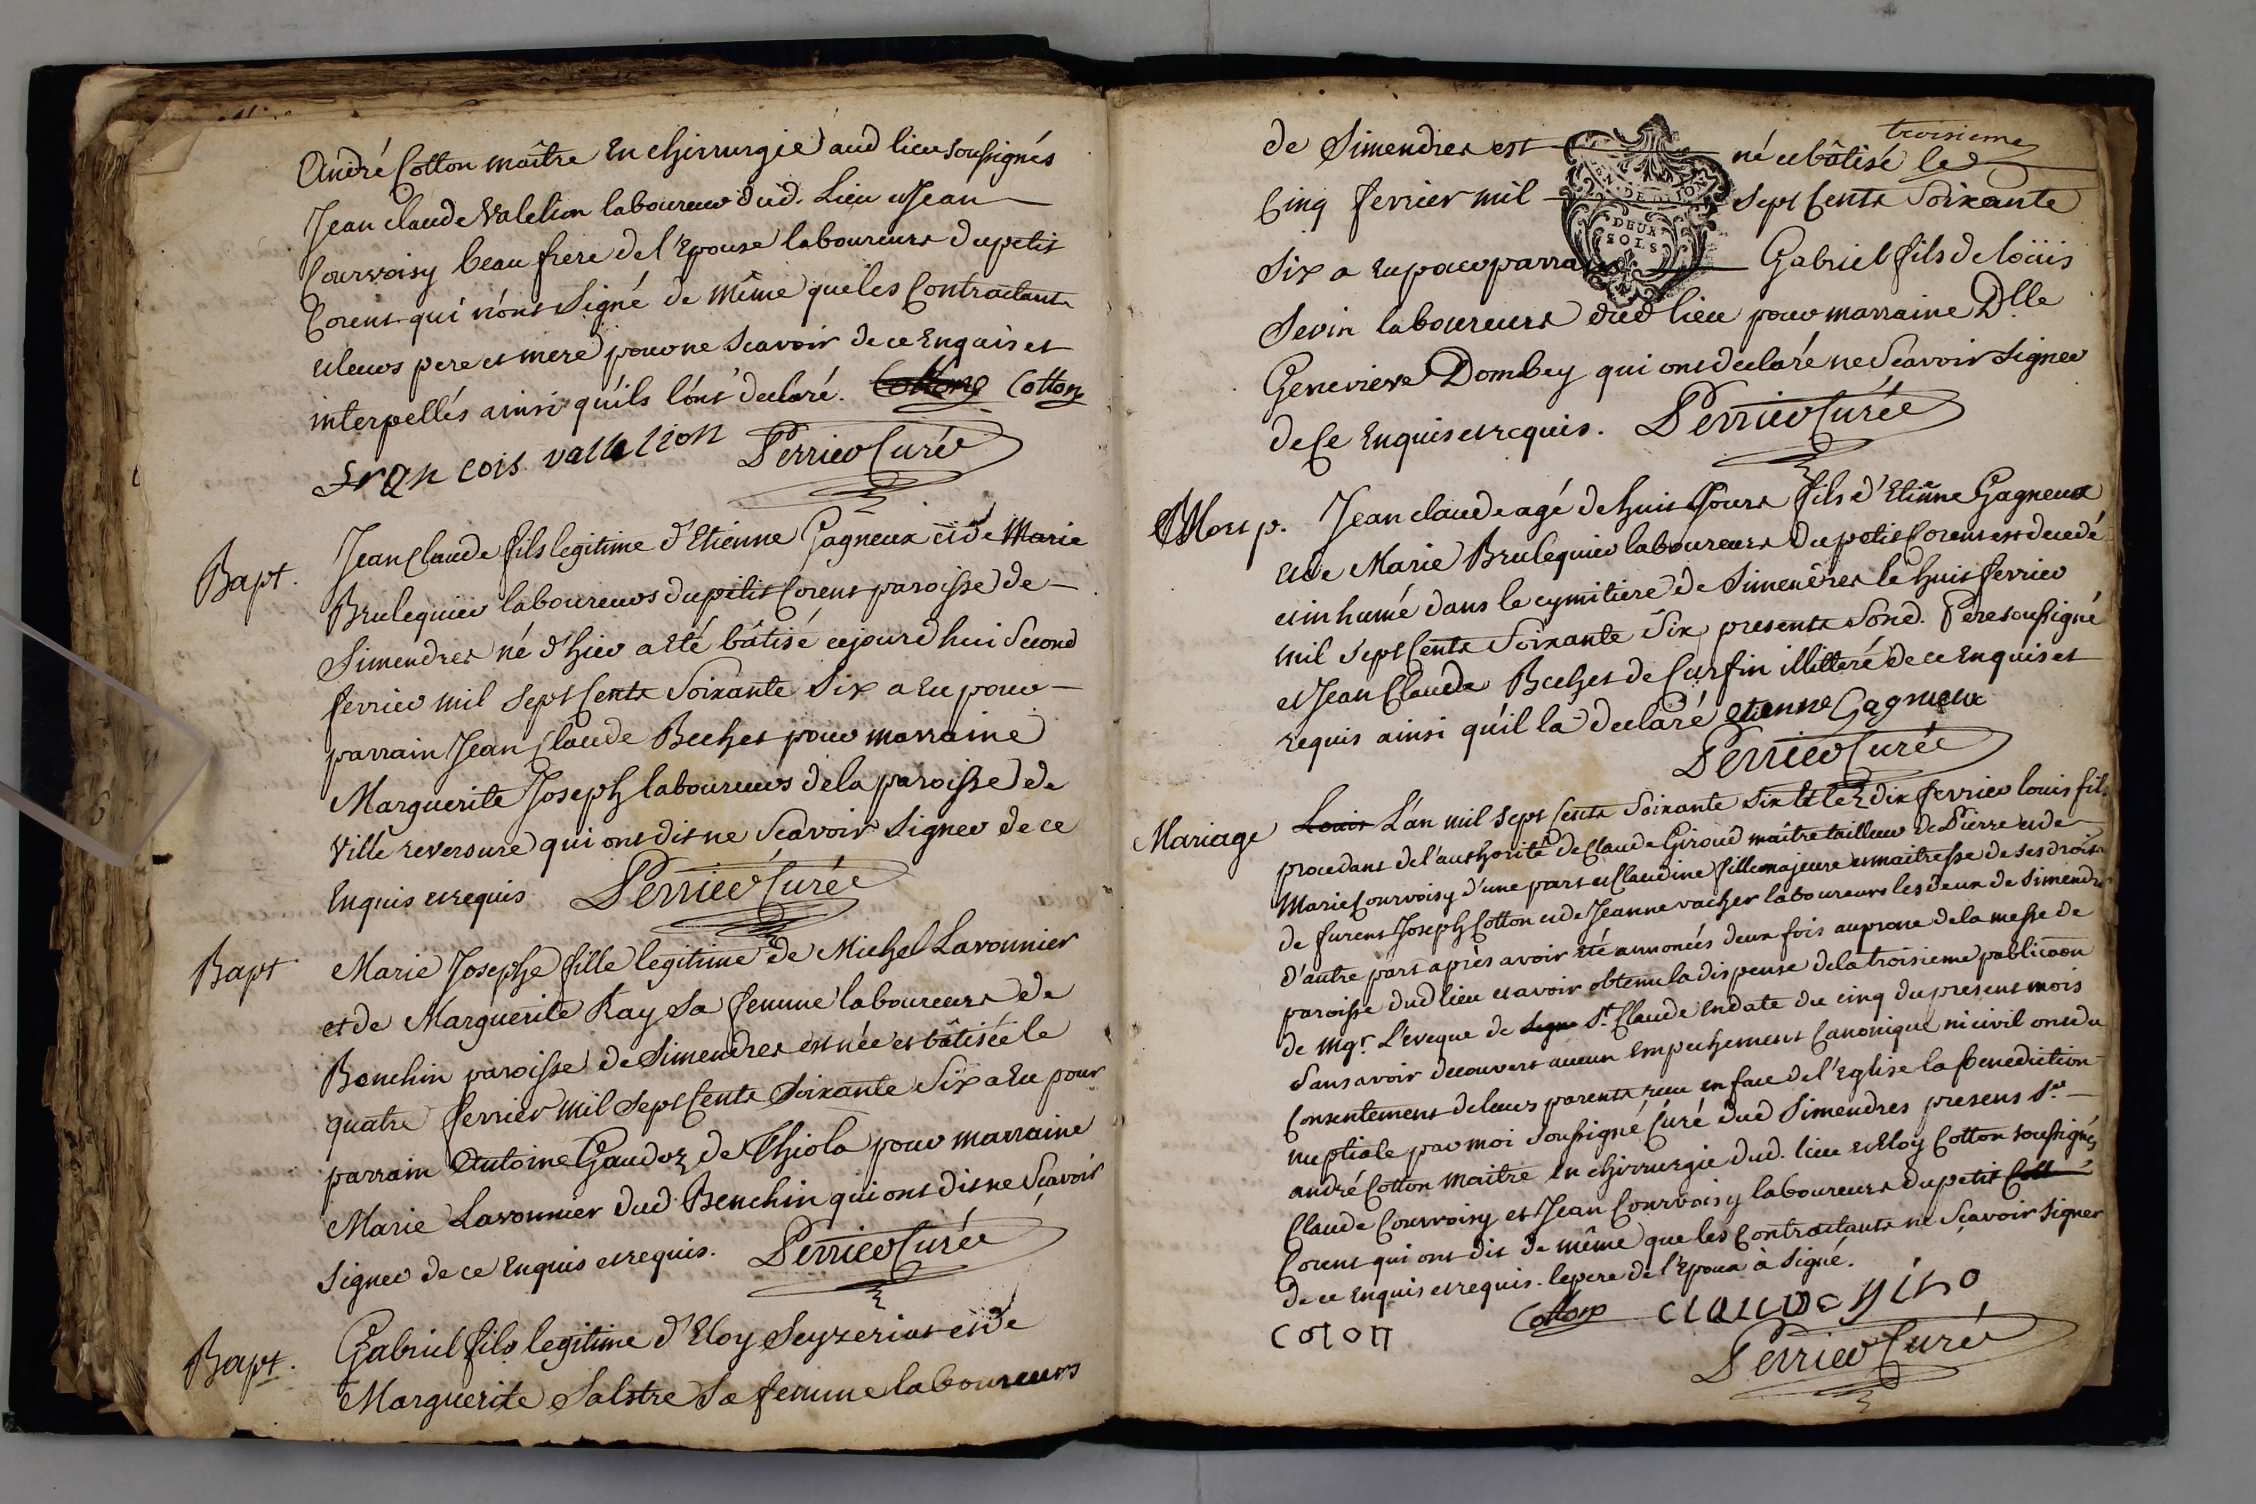 André Cotton maître en chirurgie aud lieu soussignés
Jean claude Valelion laboureur dud. Lieu et Jean
Courvoisy beau frere de l'Epouse laboureurs du petit
Corent qui n'ont signé de même que les Contractants
et leurs pere et mere pour ne scavoir de ce Enquis et
interpellés ainsi qu'ils l'ont declaré. Cotton Cotton
Fran cois vallelion Perrier Curée
Bapt. Jean Claude fils legitime d'Etienne Gagneux et de Marie
Brulequier laboureurs du petit Corent paroisse de
Simendres né d'hier a eté bâtisé cejourd'hui Second
fevrier mil sept Cents Soixante Six a Eu pour
parrain Jean Claude Buchet pour marraine
Marguerite Joseph laboureurs de la paroisse de
Ville reversure qui ont dit ne Scavoir Signer de ce
Enquis et requis Perrier Curée
Bapt Marie Josephe fille legitime de Michel Lavonnier
et de Marguerite Ray Sa femme laboureurs de
Benchin paroisse de Simendres est née et bâtisée le
quatre fevrier mil Sept Cents Soixante Six a Eu pour
parrain Antoine Gaudoz de Thiola pour marraine
Marie Lavonnier dud Benchin qui ont dit ne Scavoir
Signer de ce Enquis et requis. Perrier Curée
Bapt. Gabriel fils legitime d'Eloy Seyzeriat et de
Marguerite Salstre Sa femme laboureurs
de Simendres est né et bâtisé le troisieme
Cinq fevrier mil Sept Cents Soixante
EN DEUX SOLS
Six a Eu pour parrain Gabriel fils de loüis
Sevin laboureurs dud lieu pour marraine Dlle
Genevieve Dombey qui ont declaré ne Scavoir Signer
de Ce Enquis et requis. Perrier Curée
Mort p. Jean claude agé de huit Jours fils d'Etienne Gagneux
et de Marie Brulequier laboureurs du petit Corent est decedé
et inhumé dans le cymitiere de Simendres le huit fevrier
mil Sept Cents Soixante Six presents Sond. Pere soussigné
et Jean Claude Buchet de Curfin illitteré de ce Enquis et
requis ainsi qu'il la declaré etienne Gagneux
Perrier Curée
Mariage Louis L'an mil sept Cents Soixante Six et le dix fevrier louis fils
procedant de l'authorité de Claude Giroud maître tailleur de Pierre et de
Marie Courvoisy d'une part et Claudine fille majeure et maitresse de ses droits
de furent Joseph Cotton et de Jeanne vacher laboureurs les deux de Simendres
d'autre part après avoir eté annoncés deux fois au prone de la messe de
paroisse dud lieu et avoir obtenu la dispense de la troisieme publicaõn
de Mgr. L'eveque de St. Claude en date du cinq du present mois
Sans avoir decouvert aucun Empechement Canonique ni civil ont du
Consentement de leurs parents recu en face de l'Eglise la benediction
nuptiale par moi Soussigné Curé dud Simendres presens Sr
andré Cotton maitre en chirurgie dud. lieu et Eloy Cotton soussignés
Claude Courvoisy et Jean Courvoisy laboureurs du petit Cott
Corent qui ont dit de même que les Contractants ne Scavoir Signer
de ce Enquis et requis. le pere de l'Epoux à Signé.
coton Cotton CLAUDe giro
Perrier Curé